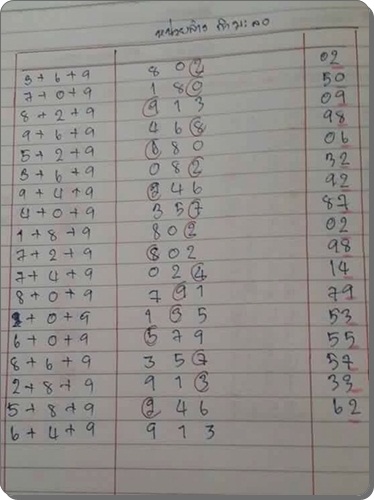 หน่วยล่าง
02
3+6+9 8 0 2 50
7+0+9 1 8 0 09
8+2+9 9 1 3 98
9+6+9 4 6 8 06
5+2+9 6 8 0 32
3+6+9 0 8 2 92
9+4+9 2 4 6 87
4+0+9 3 5 7 02
1+8+9 8 0 2 98
7+2+9 8 0 2 14
7+4+9 0 2 4 79
8+0+9 7 9 1 53
+0+9 1 3 5 55
6+0+9 5 7 9 57
8+6+9 3 5 7 33
2+8+9 9 1 3 62
5+8+9 2 4 6
6+4+9 9 1 3